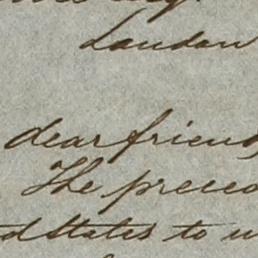 London
dear friend
The prece
d States to